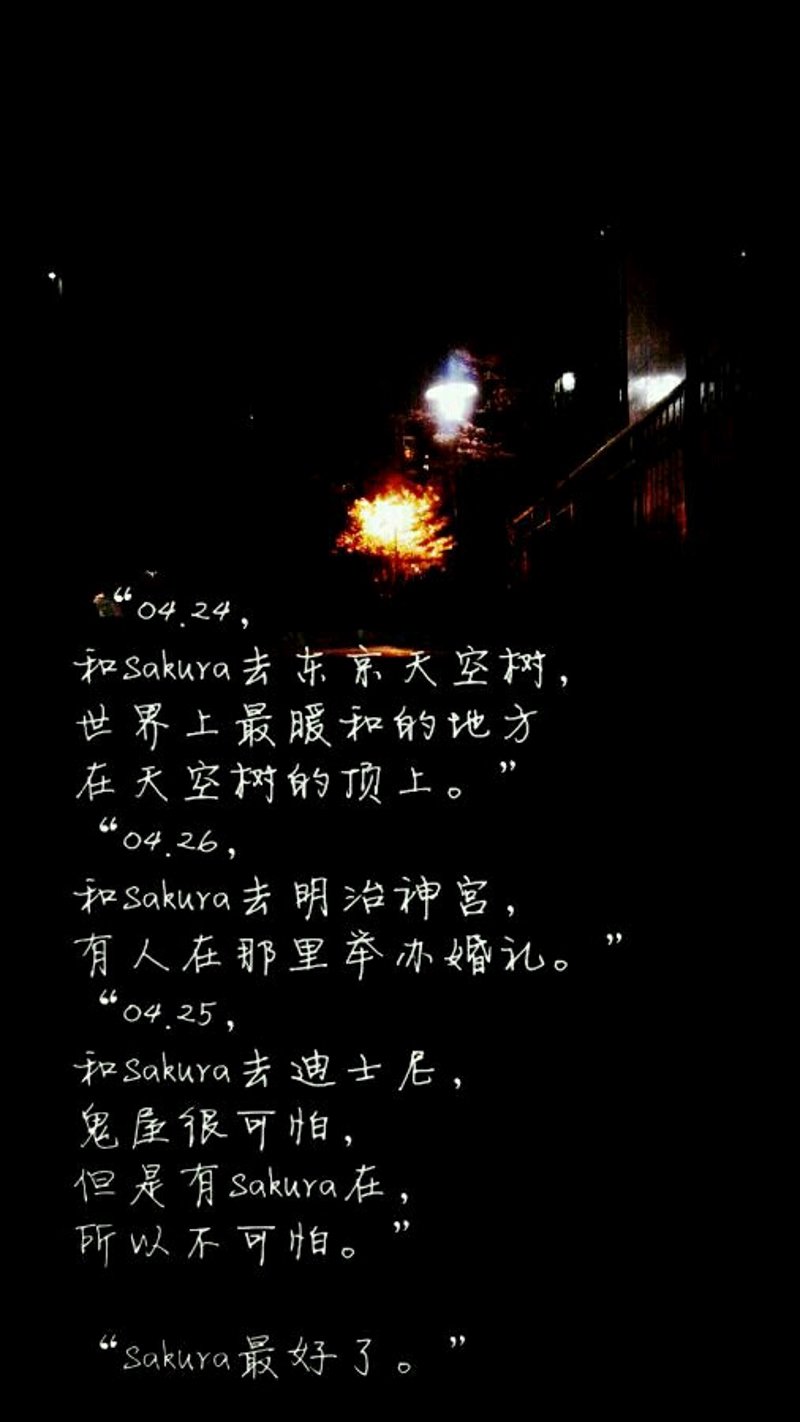 “04.24，
和Sakura去东京天空树，
世界上最暖和的地方
在天空树的顶上。”
“04.26，
和Sakura去明治神宫，
有人在那里举办婚礼。”
“04.25，
和Sakura去迪士尼，
鬼屋很可怕，
但是有Sakura在，
所以不可怕。”
“Sakura最好了。”